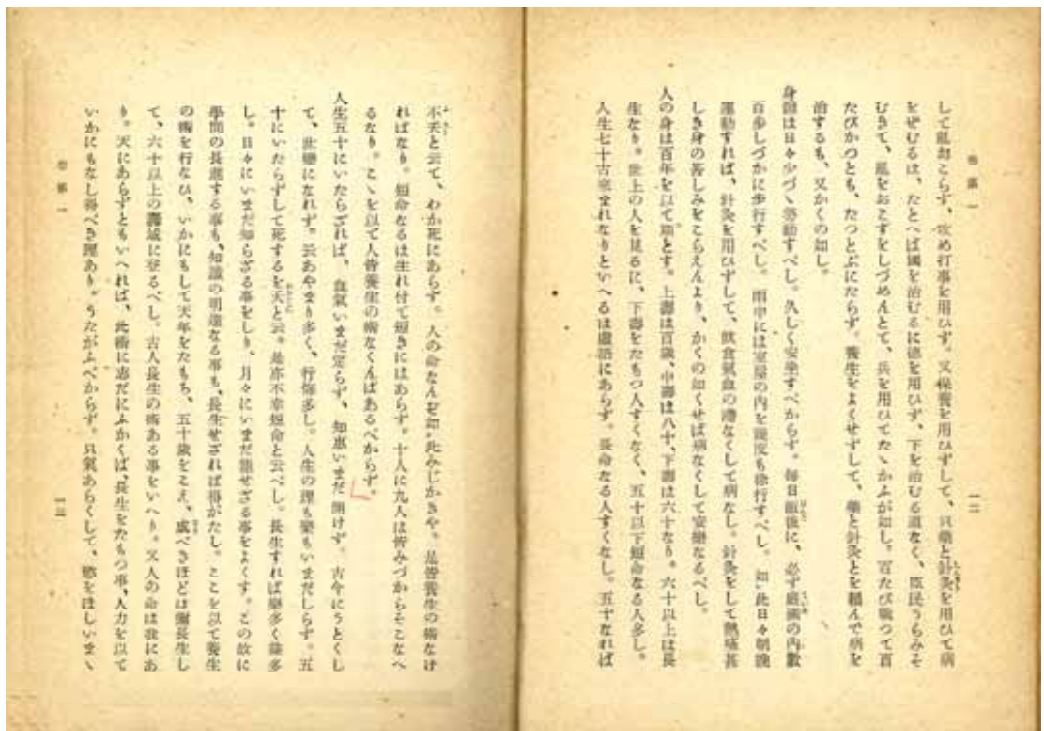 巻第一
一二
して亂おこらず。攻め打事を用ひず。又保養を用ひずして、只藥と針灸を用ひて病
をせむるは、たとへば國を治むるに徳を用ひず、下を治むる道なく、臣民うらみそ
むきて、亂をおこすをしづめんとて、兵を用ひてたゝかふが如し。百たび戰つて百
たびかつとも、たつとぶにたらず。養生をよくせずして、藥と針灸とを頼んで病を
治するも、又かくの如し。
身體は日々少づゝ勞動すべし。久しく安坐すべからず。毎日飯後に、必ず庭圃の内數
百歩しづかに歩行すべし。雨中には室屋の内を幾度も徐行すべし。如此日々朝晩
運動すれば、針灸を用ひずして、飲食氣血の滯なくして病なし。針灸をして熱痛甚
しき身の苦しみをこらえんより、かくの如くせば病なくして安樂なるべし。
人の身は百年を以て期とす。上壽は百歳、中壽は八十、下壽は六十なり。六十以上は長
生なり。世上の人を見るに、下壽をたもつ人すくなく、五十以下短命なる人多し。
人生七十古來まれなりといへるは虚語にあらず。長命なる人すくなし。五十なれば
不夭と云て、わか死にあらず。人の命なんぞ如此みじかきや。是皆養生の術なけ
ればなり。短命なるは生れ付て短きにはあらず。十人に九人は皆みづからそこなへ
るなり。こゝを以て人皆養生の術なくんばあるべからず。
人生五十にいたらざれば、血氣いまだ定らず、知惠いまだ開けず、古今にうとくし
て、世變になれず。云あやまり多く、行悔多し。人生の理も樂もいまだしらず。五
十にいたらずして死するを夭と云。是亦不幸短命と云べし。長生すれば樂多く益多
し。日々にいまだ知らざる事をしり、月々にいまだ能せざる事をよくす。この故に
學問の長進する事も、知識の明達なる事も、長生せざれば得がたし。ここを以て養生
の術を行なひ、いかにもして天年をたもち、五十歳をこえ、成べきほどは彌長生し
て、六十以上の壽域に登るべし。古人長生の術ある事をいへり。又人の命は我にあ
り。天にあらずともいへれば、此術に志だにふかくば、長生をたもつ事、人力を以て
いかにもなし得べき理あり。うたがふべからず。只氣あらくして、慾をほしいまゝ
巻第一
一三